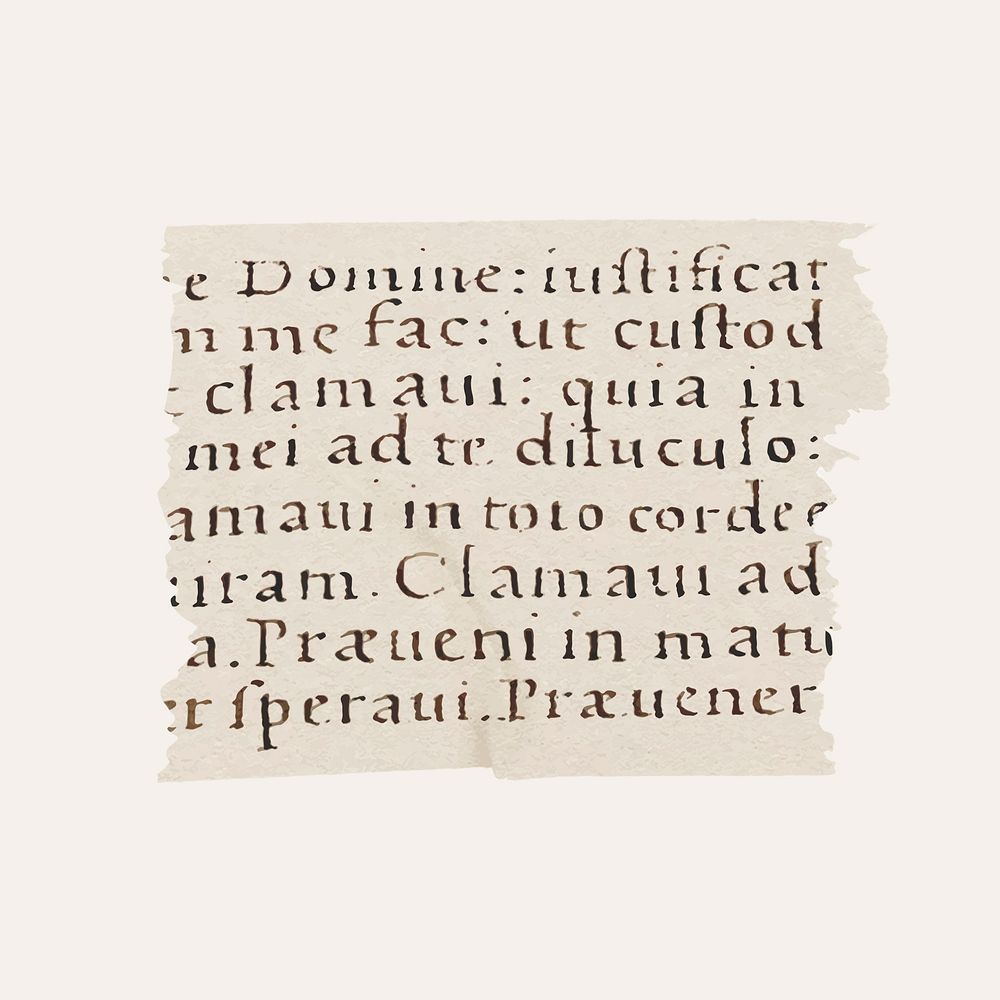 e Domine: iuſtificat
n me fac: ut cuſtod
clamaui: quia in
mei ad te diluculo:
amaui in toto corde e
uiram. Clamaui ad
a. Præueni in matu
er ſperaui. Præuener